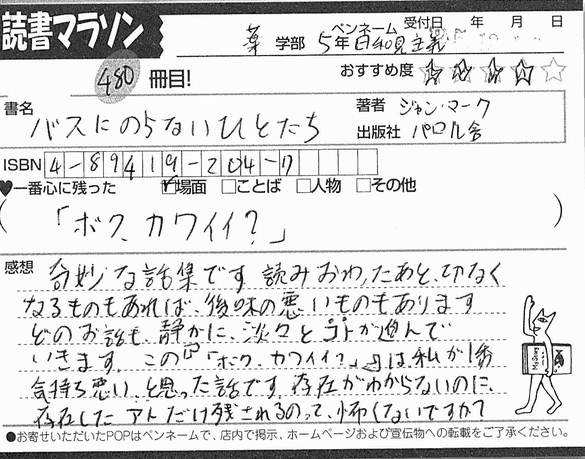 読書マラソン
薬 学部 5年 ペンネーム 日和見主義 受付日 年 月 日
480 冊目! おすすめ度 ★★★★☆
書名 バスにのらないひとたち
著者 ジャン・マーク
出版社 パロル舎
ISBN 4-89419-204-7
♥一番心に残った ☑場面 □ことば □人物 □その他
(「ボク、カワイイ?」)
感想 奇妙な話集です。読みおわったあと、切なく
なるものもあれば、後味の悪いものもあります
どのお話も、静かに、淡々とコトが進んで
いきます。この『「ボク、カワイイ?」』は私が1番
気持ち悪い、と思った話です。存在がわからないのに、
存在したアトだけ残されるのって、怖くないですか?
●お寄せいただいたPOPはペンネームで、店内で掲示、ホームページおよび宣伝物への転載をご了承ください。